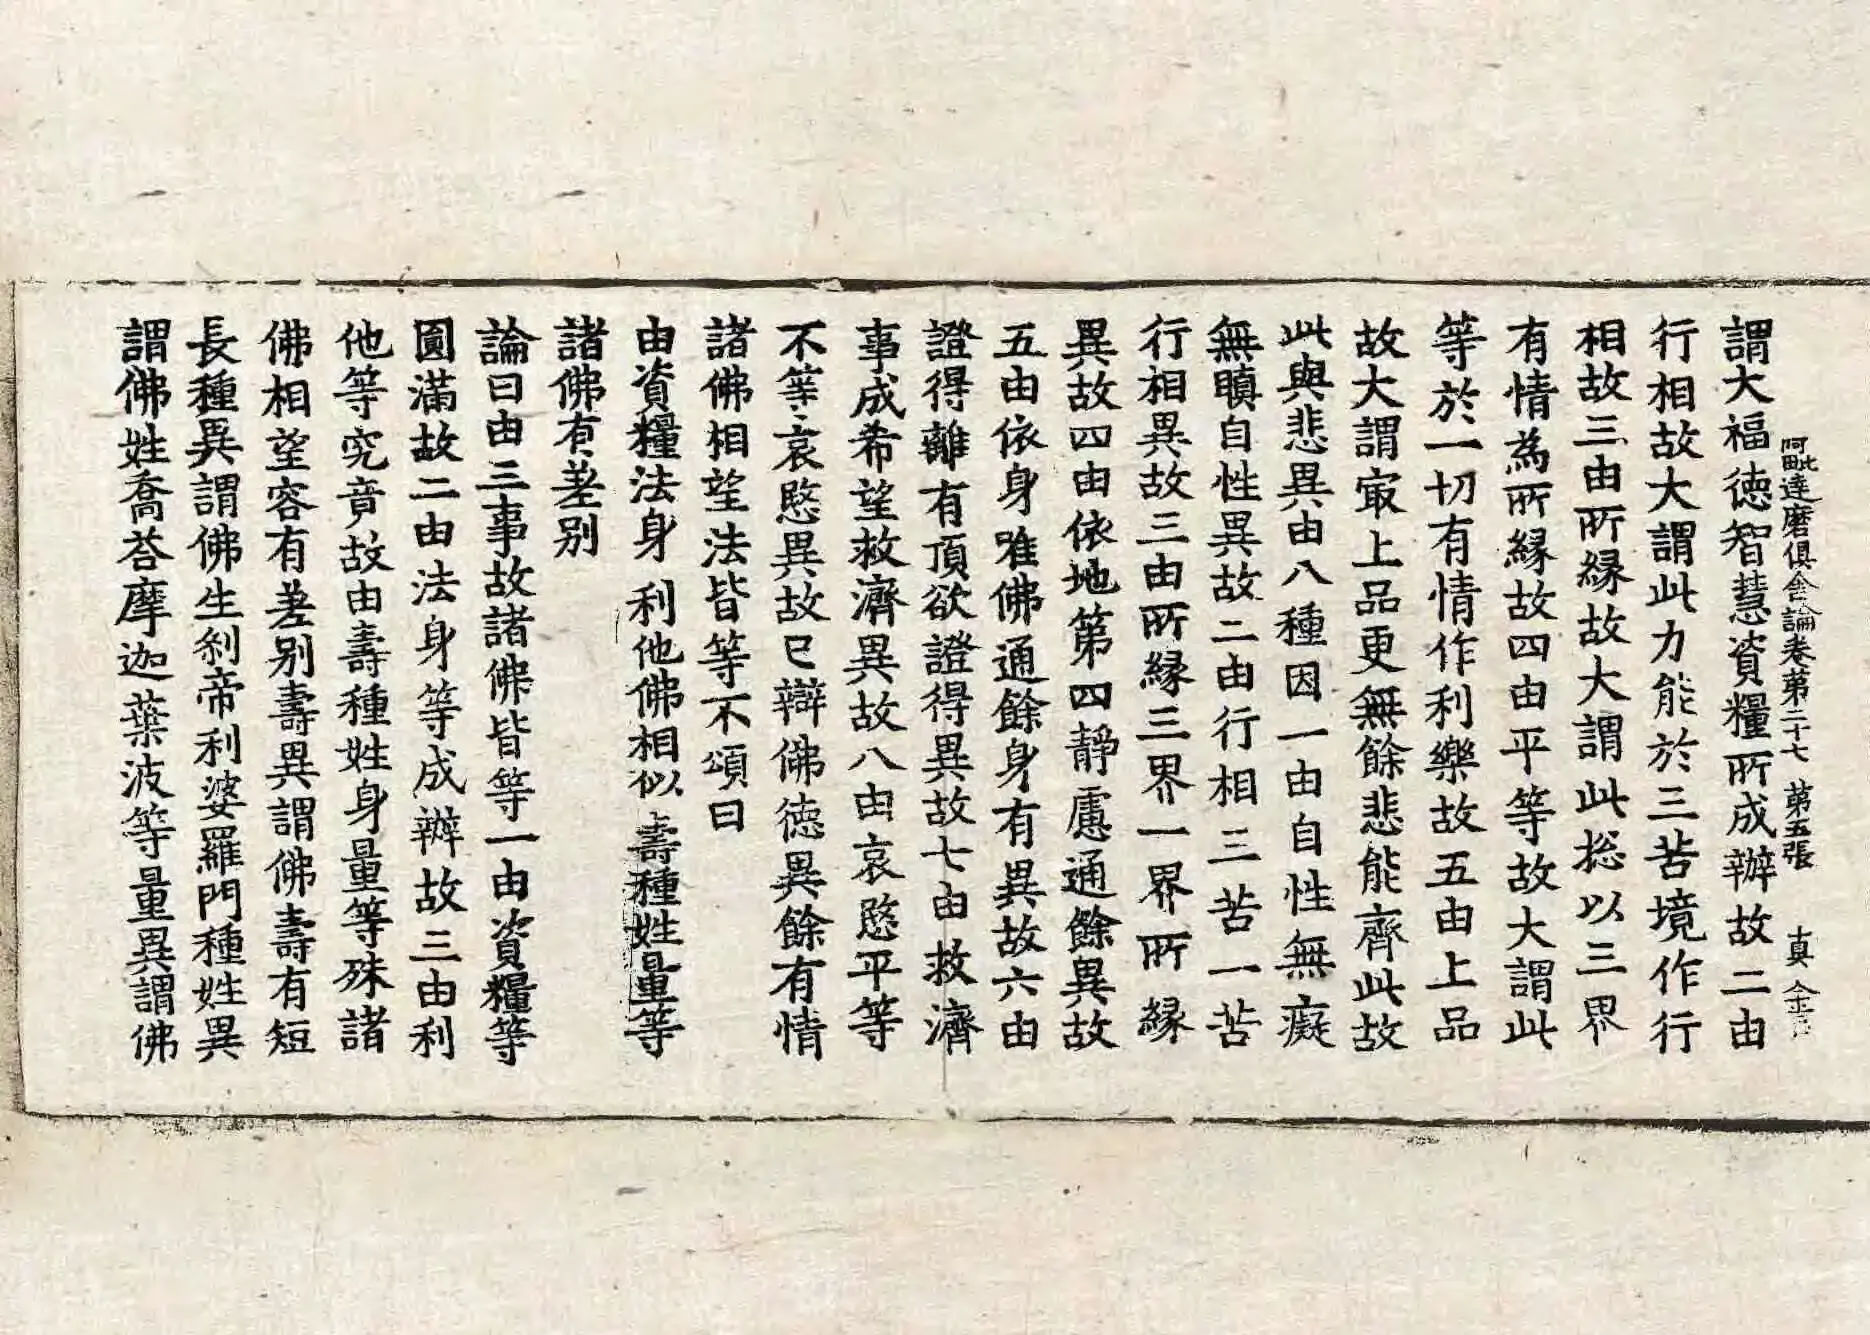 阿毗達磨俱舍論卷第二十七 第五張 真 金
謂大福徳智慧資糧所成辦故二由
行相故大謂此力能於三苦境作行
相故三由所縁故大謂此捴以三界
有情為所縁故四由平等故大謂此
等於一切有情作利樂故五由上品
故大謂㝡上品更無餘悲能齊此故
此與悲異由八種因一由自性無癡
無瞋自性異故二由行相三苦一苦
行相異故三由所縁三界一界所縁
異故四由依地第四靜慮通餘異故
五由依身唯佛通餘身有異故六由
證得離有頂欲證得異故七由救濟
事成希望救濟異故八由哀愍平等
不等哀愍異故已辯佛徳異餘有情
諸佛相望法皆等不頌曰
由資糧法身 利他佛相似 壽種姓量等
諸佛有差别
論曰由三事故諸佛皆等一由資糧等
圓滿故二由法身等成辦故三由利
他等究竟故由壽種姓身量等殊諸
佛相望容有差别壽異謂佛壽有短
長種異謂佛生剎帝利婆羅門種姓異
謂佛姓喬荅摩迦葉波等量異謂佛